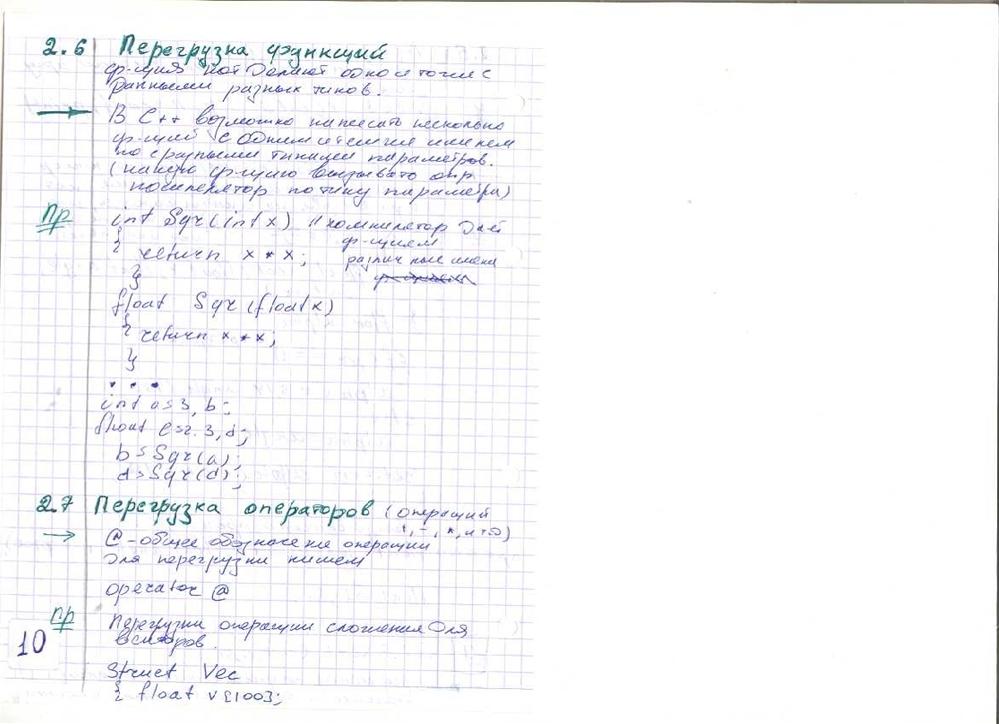 2.6 Перегрузка функций
ф-ция кот делают одно и то же с
данными разных типов.
→ В C++ возможно написать несколько
ф-ций с одним и тем же именем
но с разными типами параметров.
(какую ф-цию вызывать опр.
компилятор по типу параметра)
Пр int Sqr(int x) // компилятор дает
{ ф-циям
return x * x; различные имена
}
float Sqr (float x)
{ return x * x;
}
...
int a=3, b;
float c=2.3, d;
b=Sqr(a);
d=Sqr(d);
2.7 Перегрузка операторов (операций
+, -, *, и т.д)
→ @ - общее обозначение операции
для перегрузки пишем
operator @
Пр Перегрузки операции сложения для
векторов.
10
Struct Vec
{ float v[100];